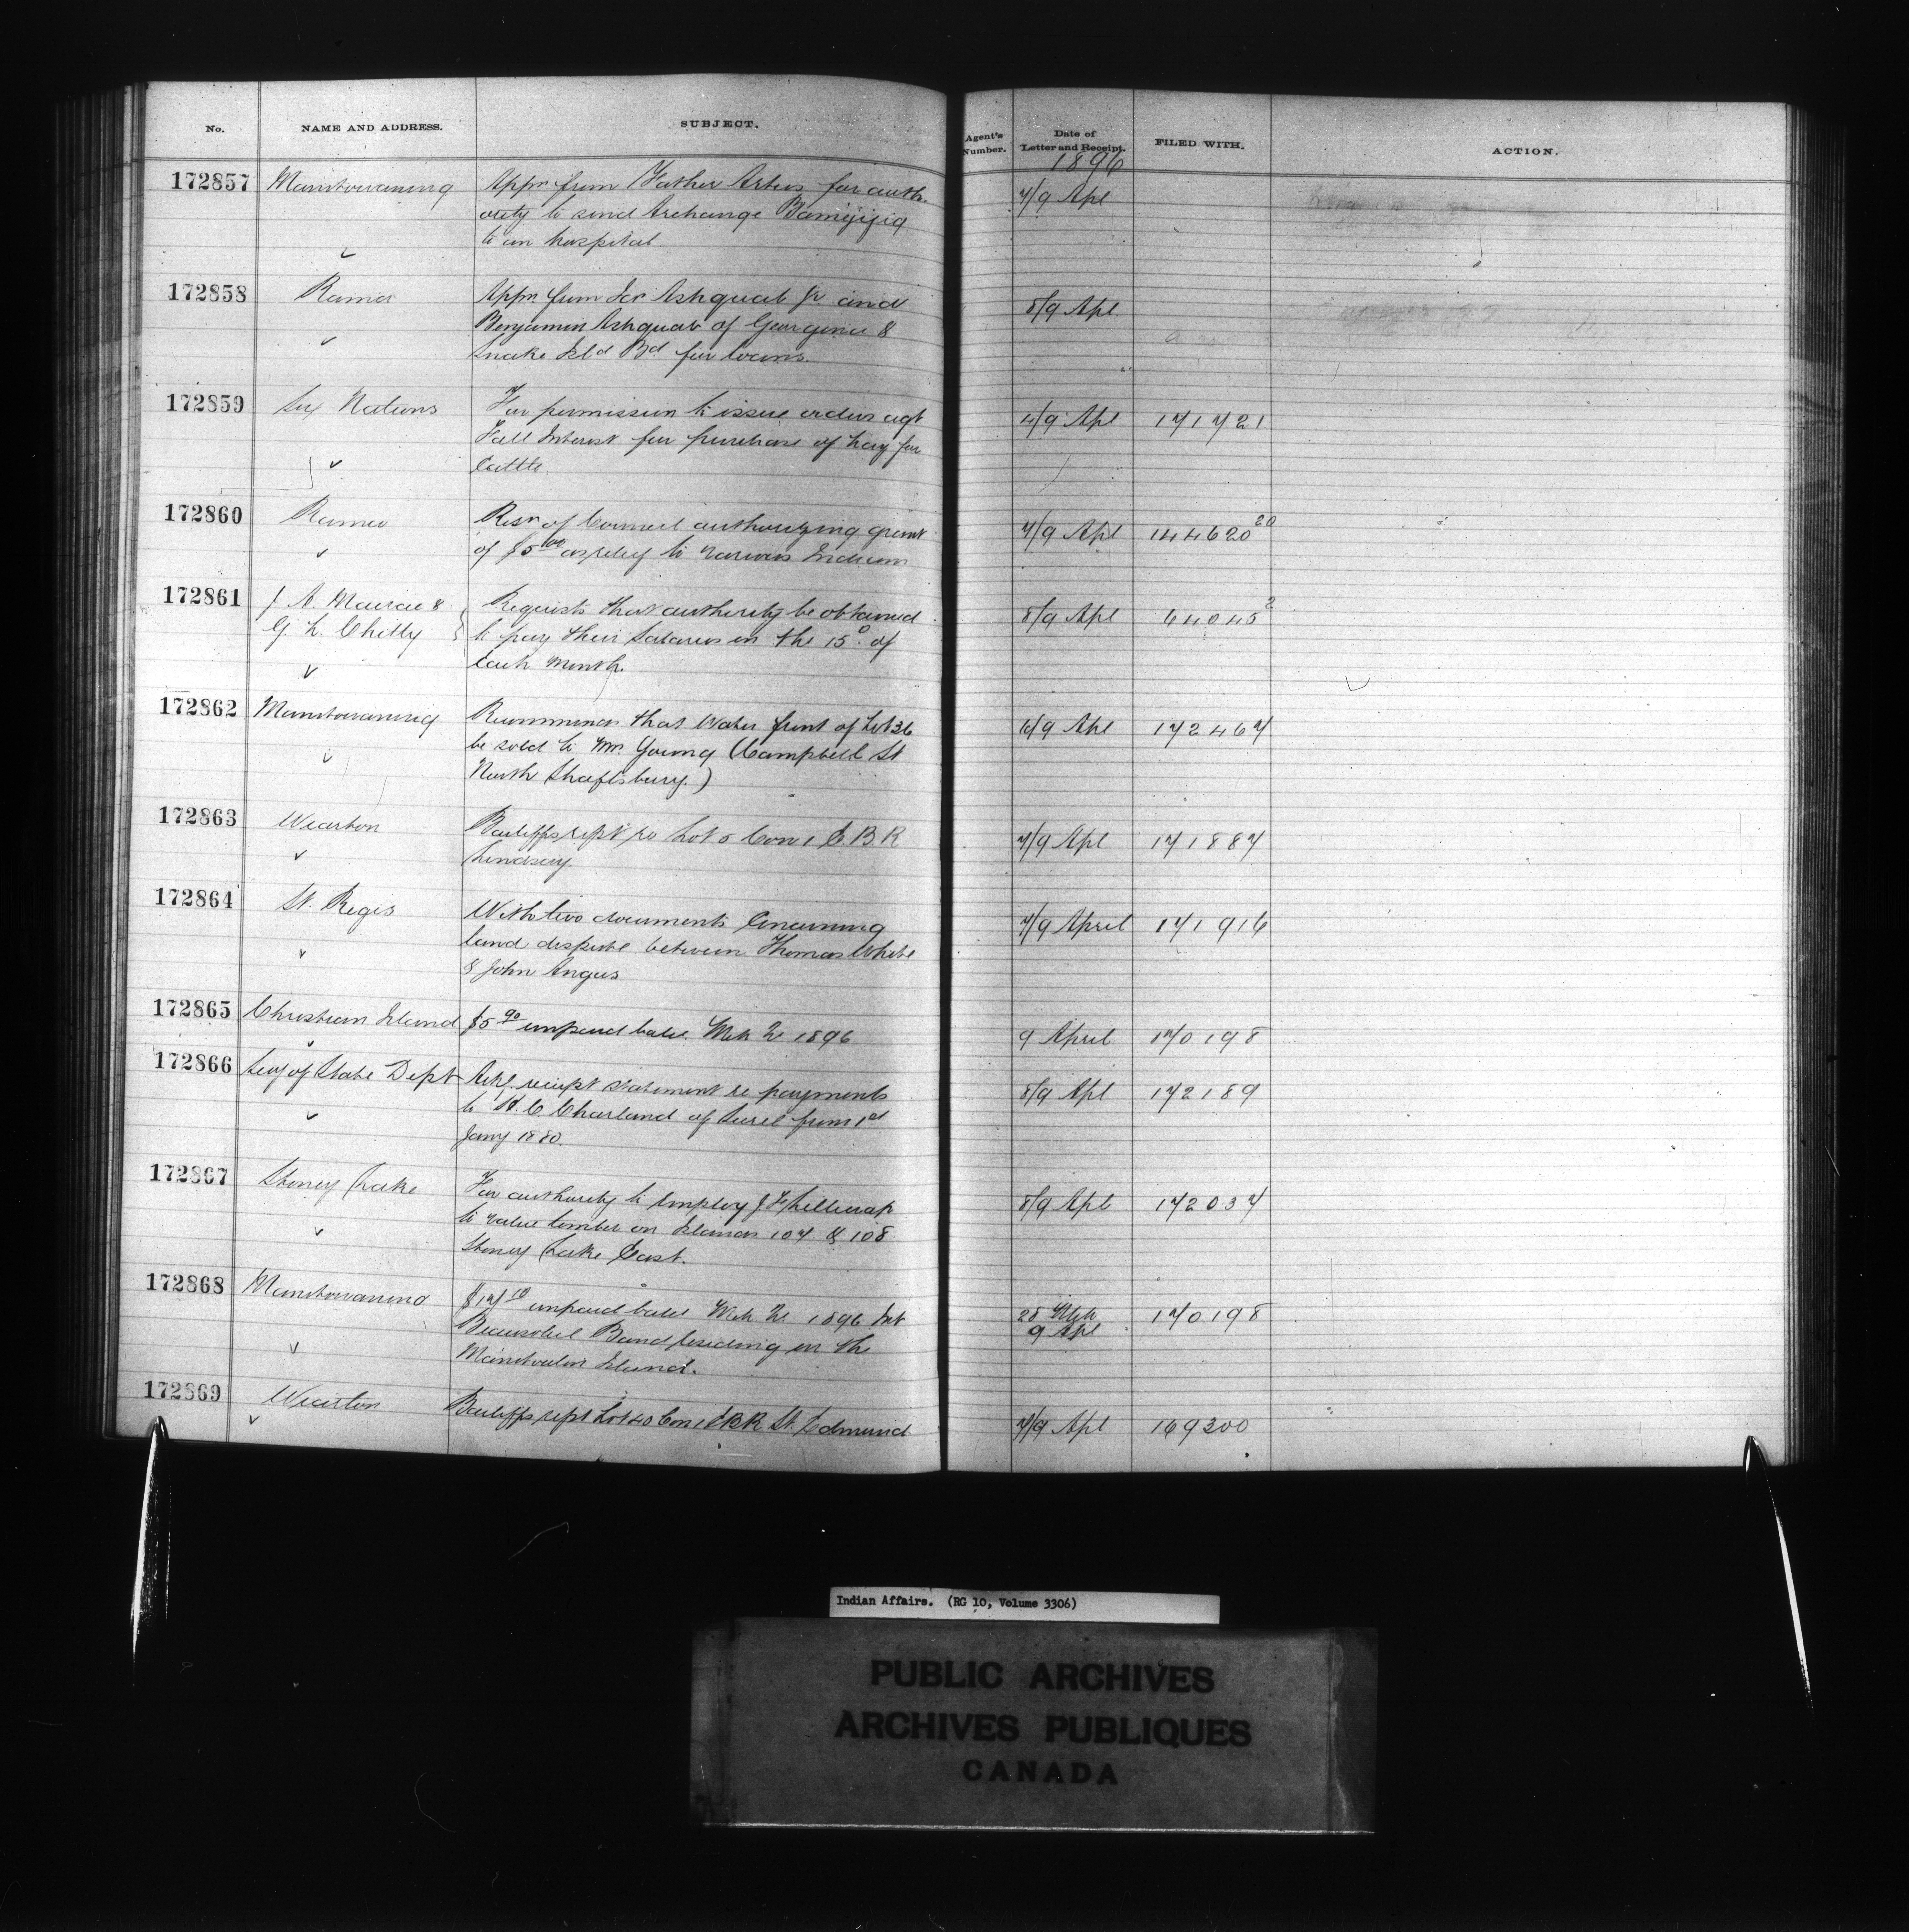 No. NAME AND ADDRESS. SUBJECT. Agent's Number. Date of Letter and Receipt. FILED WITH. ACTION.
1896
172857 Manitowaning Appn from Father Artus for auth- 7/9 Apl
ority to send Archange
to an hospital
172858 Rama Appn from Ashquab Jr. and 8/9 Apl
Benjamin Ashquab of Georgina &
Snake Isld Bd for loans.
172859 Six Nations For permission to issue orders agt 4/9 Apl 171721
Fall Interest for purchase of hay for
Cattle.
172860 Rama Resn of Council authorizing grant 7/9 Apl 144620 20
of $5 00 as relief to various Indians
172861 J. A. Macrae & Requests that authority be obtained 8/9 Apl 64045 2
G. L. Chitty to pay their Salaries on the 15th of
each month.
172862 Manitowaning Recommends that Water front of Lot 36 6/9 Apl 172467
be sold to Mr. Young (Campbell St
North Shaftsbury.)
172863 Wiarton Bailiffs rept re Lot 5 Con 1 E.B.R 7/9 Apl 171887
Lindsay.
172864 St. Regis With two documents concerning 7/9 April 171916
land dispute between Thomas White
& John Angus
172865 Christian Island $5 90 unpaid balce. Mch 1896 9 April 170198
172866 Secy of State Dept Ackg. receipt statement re payments 8/9 Apl 172189
to H. C. Charland of Sorel from 1st
Jany 1880.
172867 Stoney Lake For authority to employ J. 8/9 Apl 172037
to value timber on Islands 107 & 108
Stoney Lake East.
172868 Manitowaning $17 10 unpaid balce Mch 1896 Int 28 Mch 170198
Beausoleil Band residing on the 9 Apl
Manitoulin Island.
172869 Wiarton Bailiffs rept Lot 40 Con 1 E B R St. Edmund 7/9 Apl 169300
Indian Affairs. (RG 10, Volume 3306)
PUBLIC ARCHIVES
ARCHIVES PUBLIQUES
CANADA